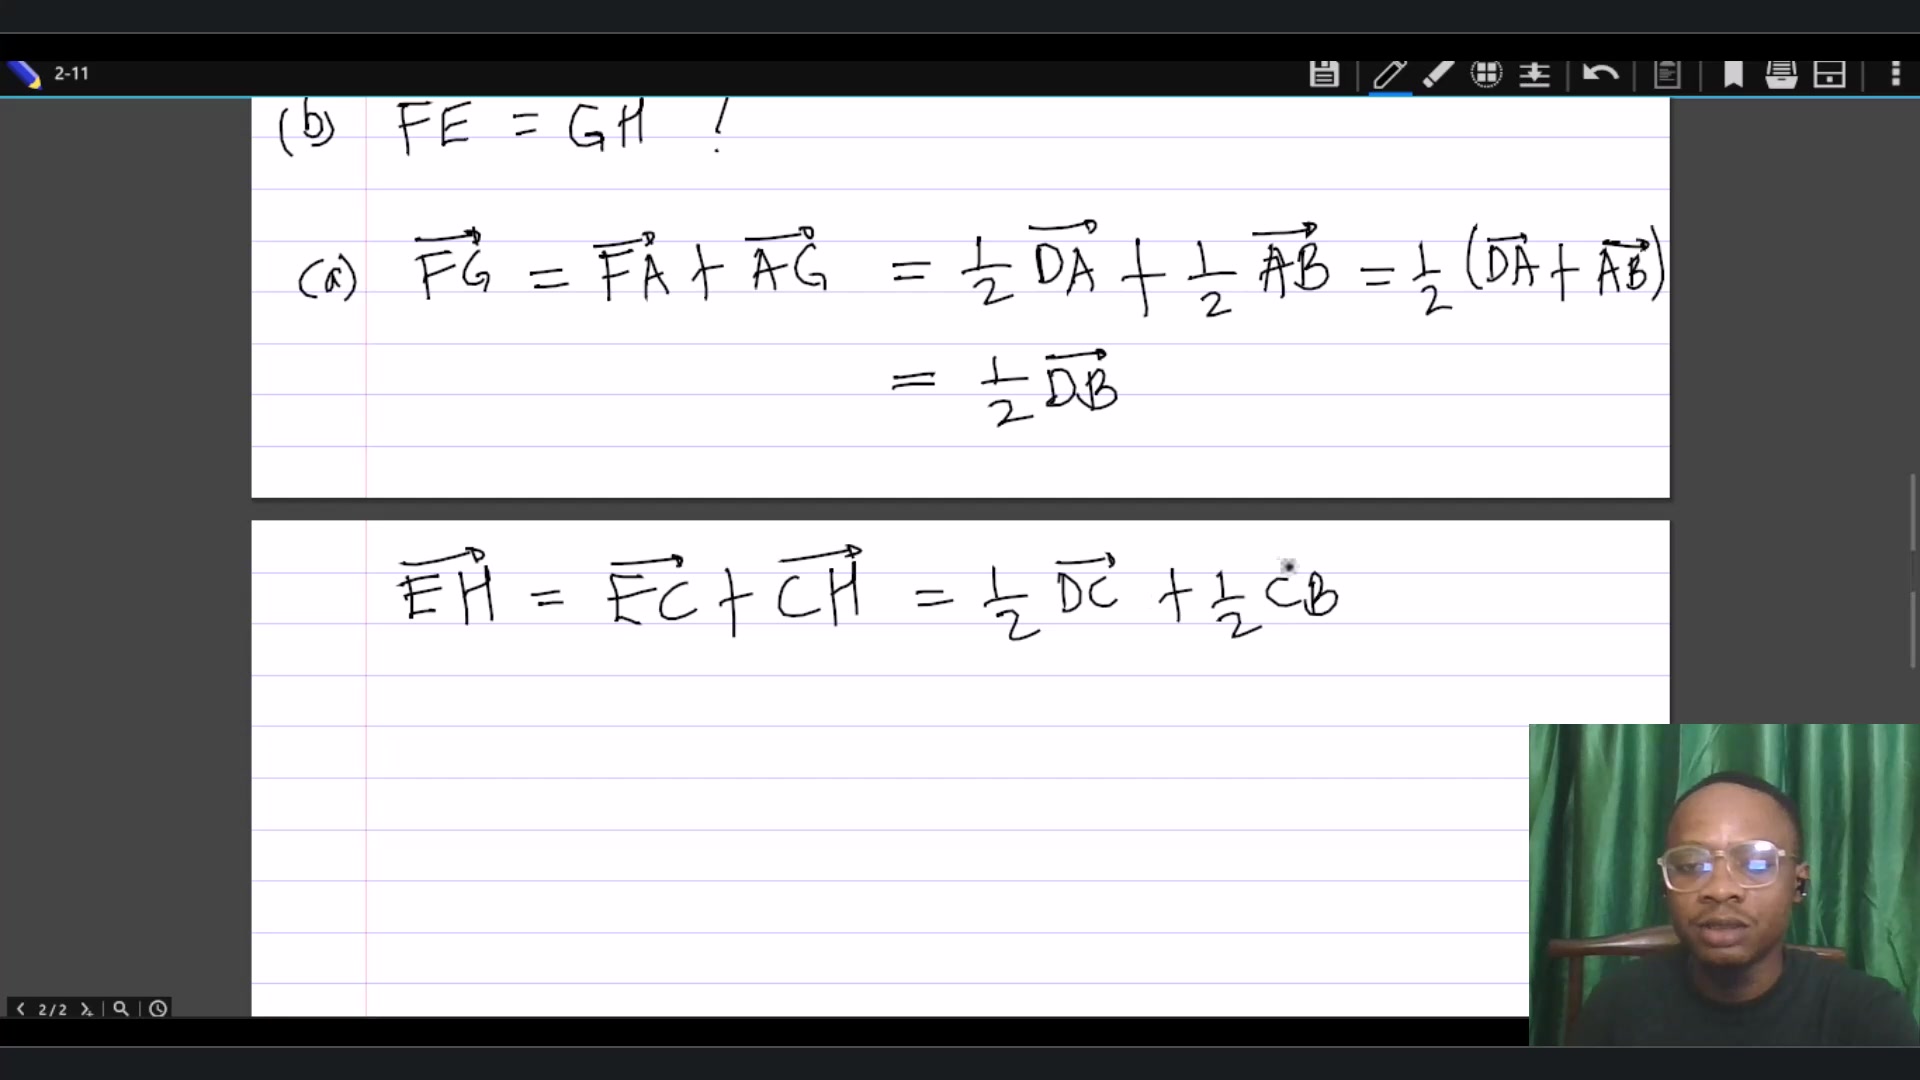 2-11
(b) FE = GH !
(a) \overrightarrow{FG} = \overrightarrow{FA} + \overrightarrow{AG} = \frac{1}{2} \overrightarrow{DA} + \frac{1}{2} \overrightarrow{AB} = \frac{1}{2} (\overrightarrow{DA} + \overrightarrow{AB})
= \frac{1}{2} \overrightarrow{DB}
\overrightarrow{EH} = \overrightarrow{EC} + \overrightarrow{CH} = \frac{1}{2} \overrightarrow{DC} + \frac{1}{2} CB
2/2